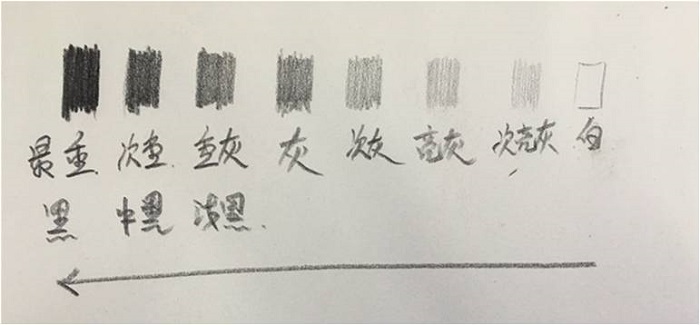 最重 次重 重灰 灰 次灰 亮灰 次亮灰 白
黑 中黑 浅黑